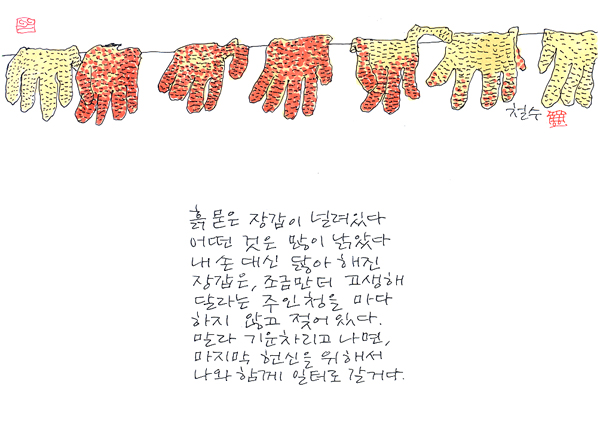 철수
흙 묻은 장갑이 널려있다
어떤 것은 많이 낡았다
내 손 대신 닳아 해진
장갑은, 조금만 더 고생해
달라는 주인청을 마다
하지 않고 젖어 있다.
말라 기운차리고 나면,
마지막 헌신을 위해서
나와 함께 일터로 갈거다.